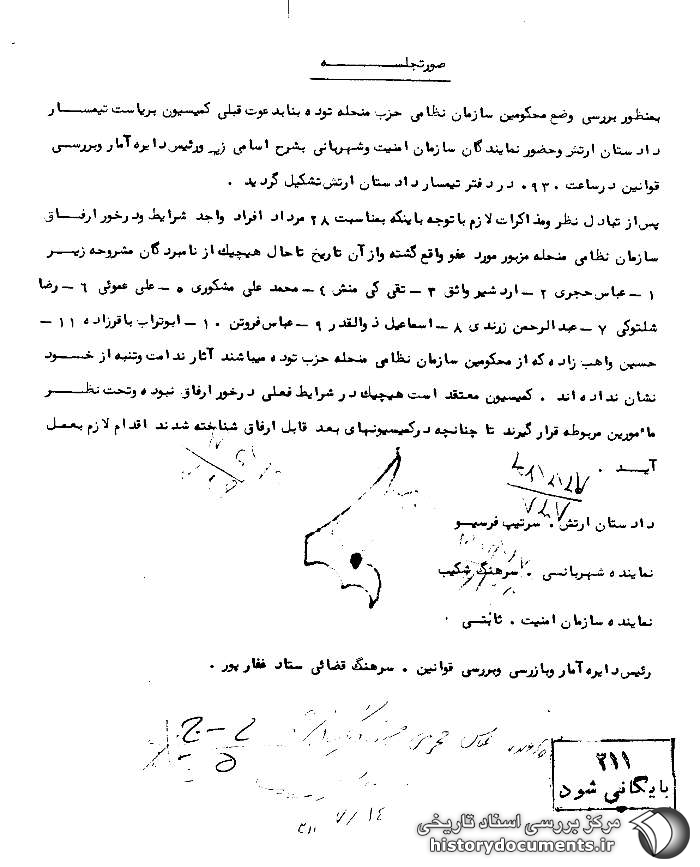 صورتجلســــــه
بمنظور بررسی وضع محکومین سازمان نظامی حزب منحله توده بنابدعوت قبلی کمیسیون بریاست تیمسـار
دادستان ارتش وحضور نمایندگان سازمان امنیت وشهربانی بشرح اسامی زیر ورئیس دایره آمار وبررسی
قوانین درساعت ۰۹۳۰ در دفتر تیمسار دادستان ارتش تشکیل گردید .
پس از تبادل نظر ومذاکرات لازم باتوجه باینکه بمناسبت ۲۸ مرداد افراد واجد شرایط ودرخور ارفـاق
سازمان نظامی منحله مزبور مورد عفو واقع گشته واز آن تاریخ تاحال هیچیک از نامبردگان مشروحه زیـر
۱ – عباس حجری ۲ – اردشیر واثق ۳ – تقی کی منش ٤ – محمد علی مشکوری ٥ – علی عموئی ٦ – رضا
شلتوکی ۷ – عبدالرحمن زرندی ۸ – اسماعیل ذوالقدر ۹ – عباس فروتن ۱۰ – ابوتراب باقرزاده ۱۱ –
حسین واهب زاده که از محکومین سازمان نظامی منحله حزب توده میباشند آثار ندامت وتنبه از خـود
نشان نداده اند . کمیسیون معتقد است هیچیک در شرایط فعلی درخور ارفاق نبوده وتحت نظـر
مأمورین مربوطه قرار گیرند تا چنانچه درکمیسیونهای بعد قابل ارفاق شناخته شدند اقدام لازم بعمل
آیــد .
دادستان ارتش . سرتیپ فرسیـو
نماینده شهربانـی . سرهنگ شکیب
نماینده سازمان امنیت . ثابتـی .
رئیس دایره آمار وبازرسی وبررسی قوانین . سرهنگ قضائی ستاد غفارپور .
عباس حجری
۷/۱٤
۳۱۱
۳۱۱
بایگانی شود
مرکز بررسی اسناد تاریخی
historydocuments.ir